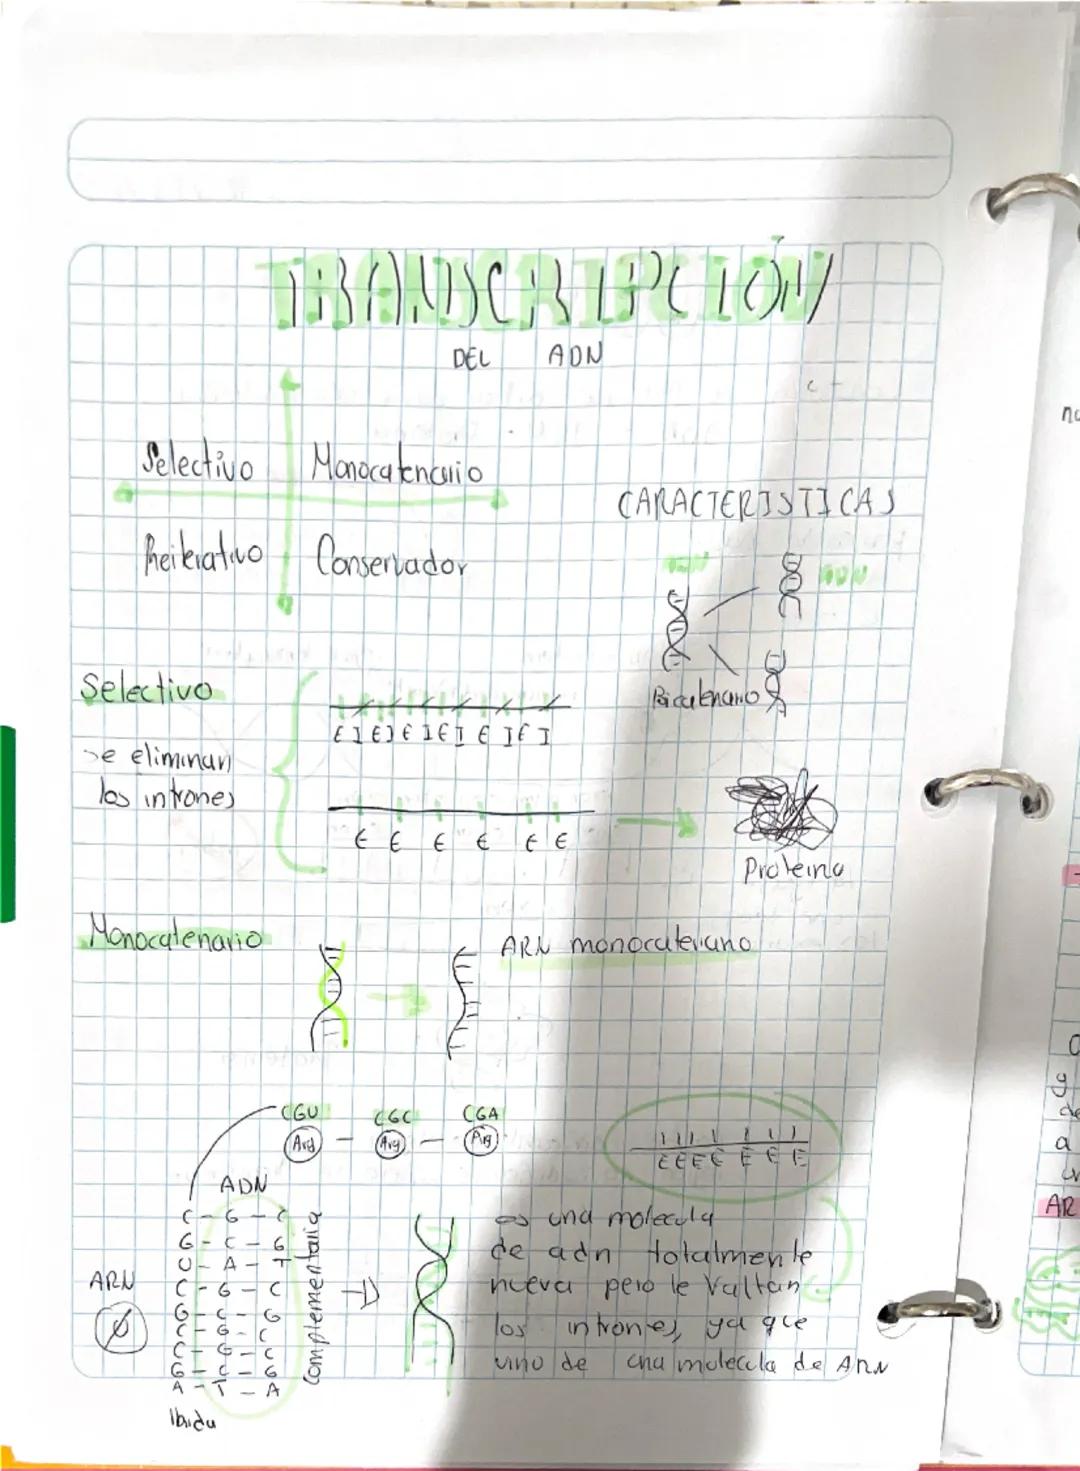 TRANSCRIPCIÓN
DEL ADN
Selectivo Monocatenario
Reiterativo Conservador
CARACTERISTICAS
ADN
Bicatenario
Selectivo
se eliminan
los intrones
E I E I E I E I E I E I
E E E E E E
Proteina
Monocatenario
ARN monocatenano
CGU CGC CGA
Arg Arg Arg
E E E E E E E
ADN
C - G - C
G - C - G
U - A - T
C - G - C
G - C - G
C - G - C
C - G - C
G - C - G
A - T - A
ARN
complementaria
Ibrida
es una molecula
de adn totalmente
nueva pero le faltan
los intrones, ya que
vino de una molecula de ARN
no
y
de
a
AR